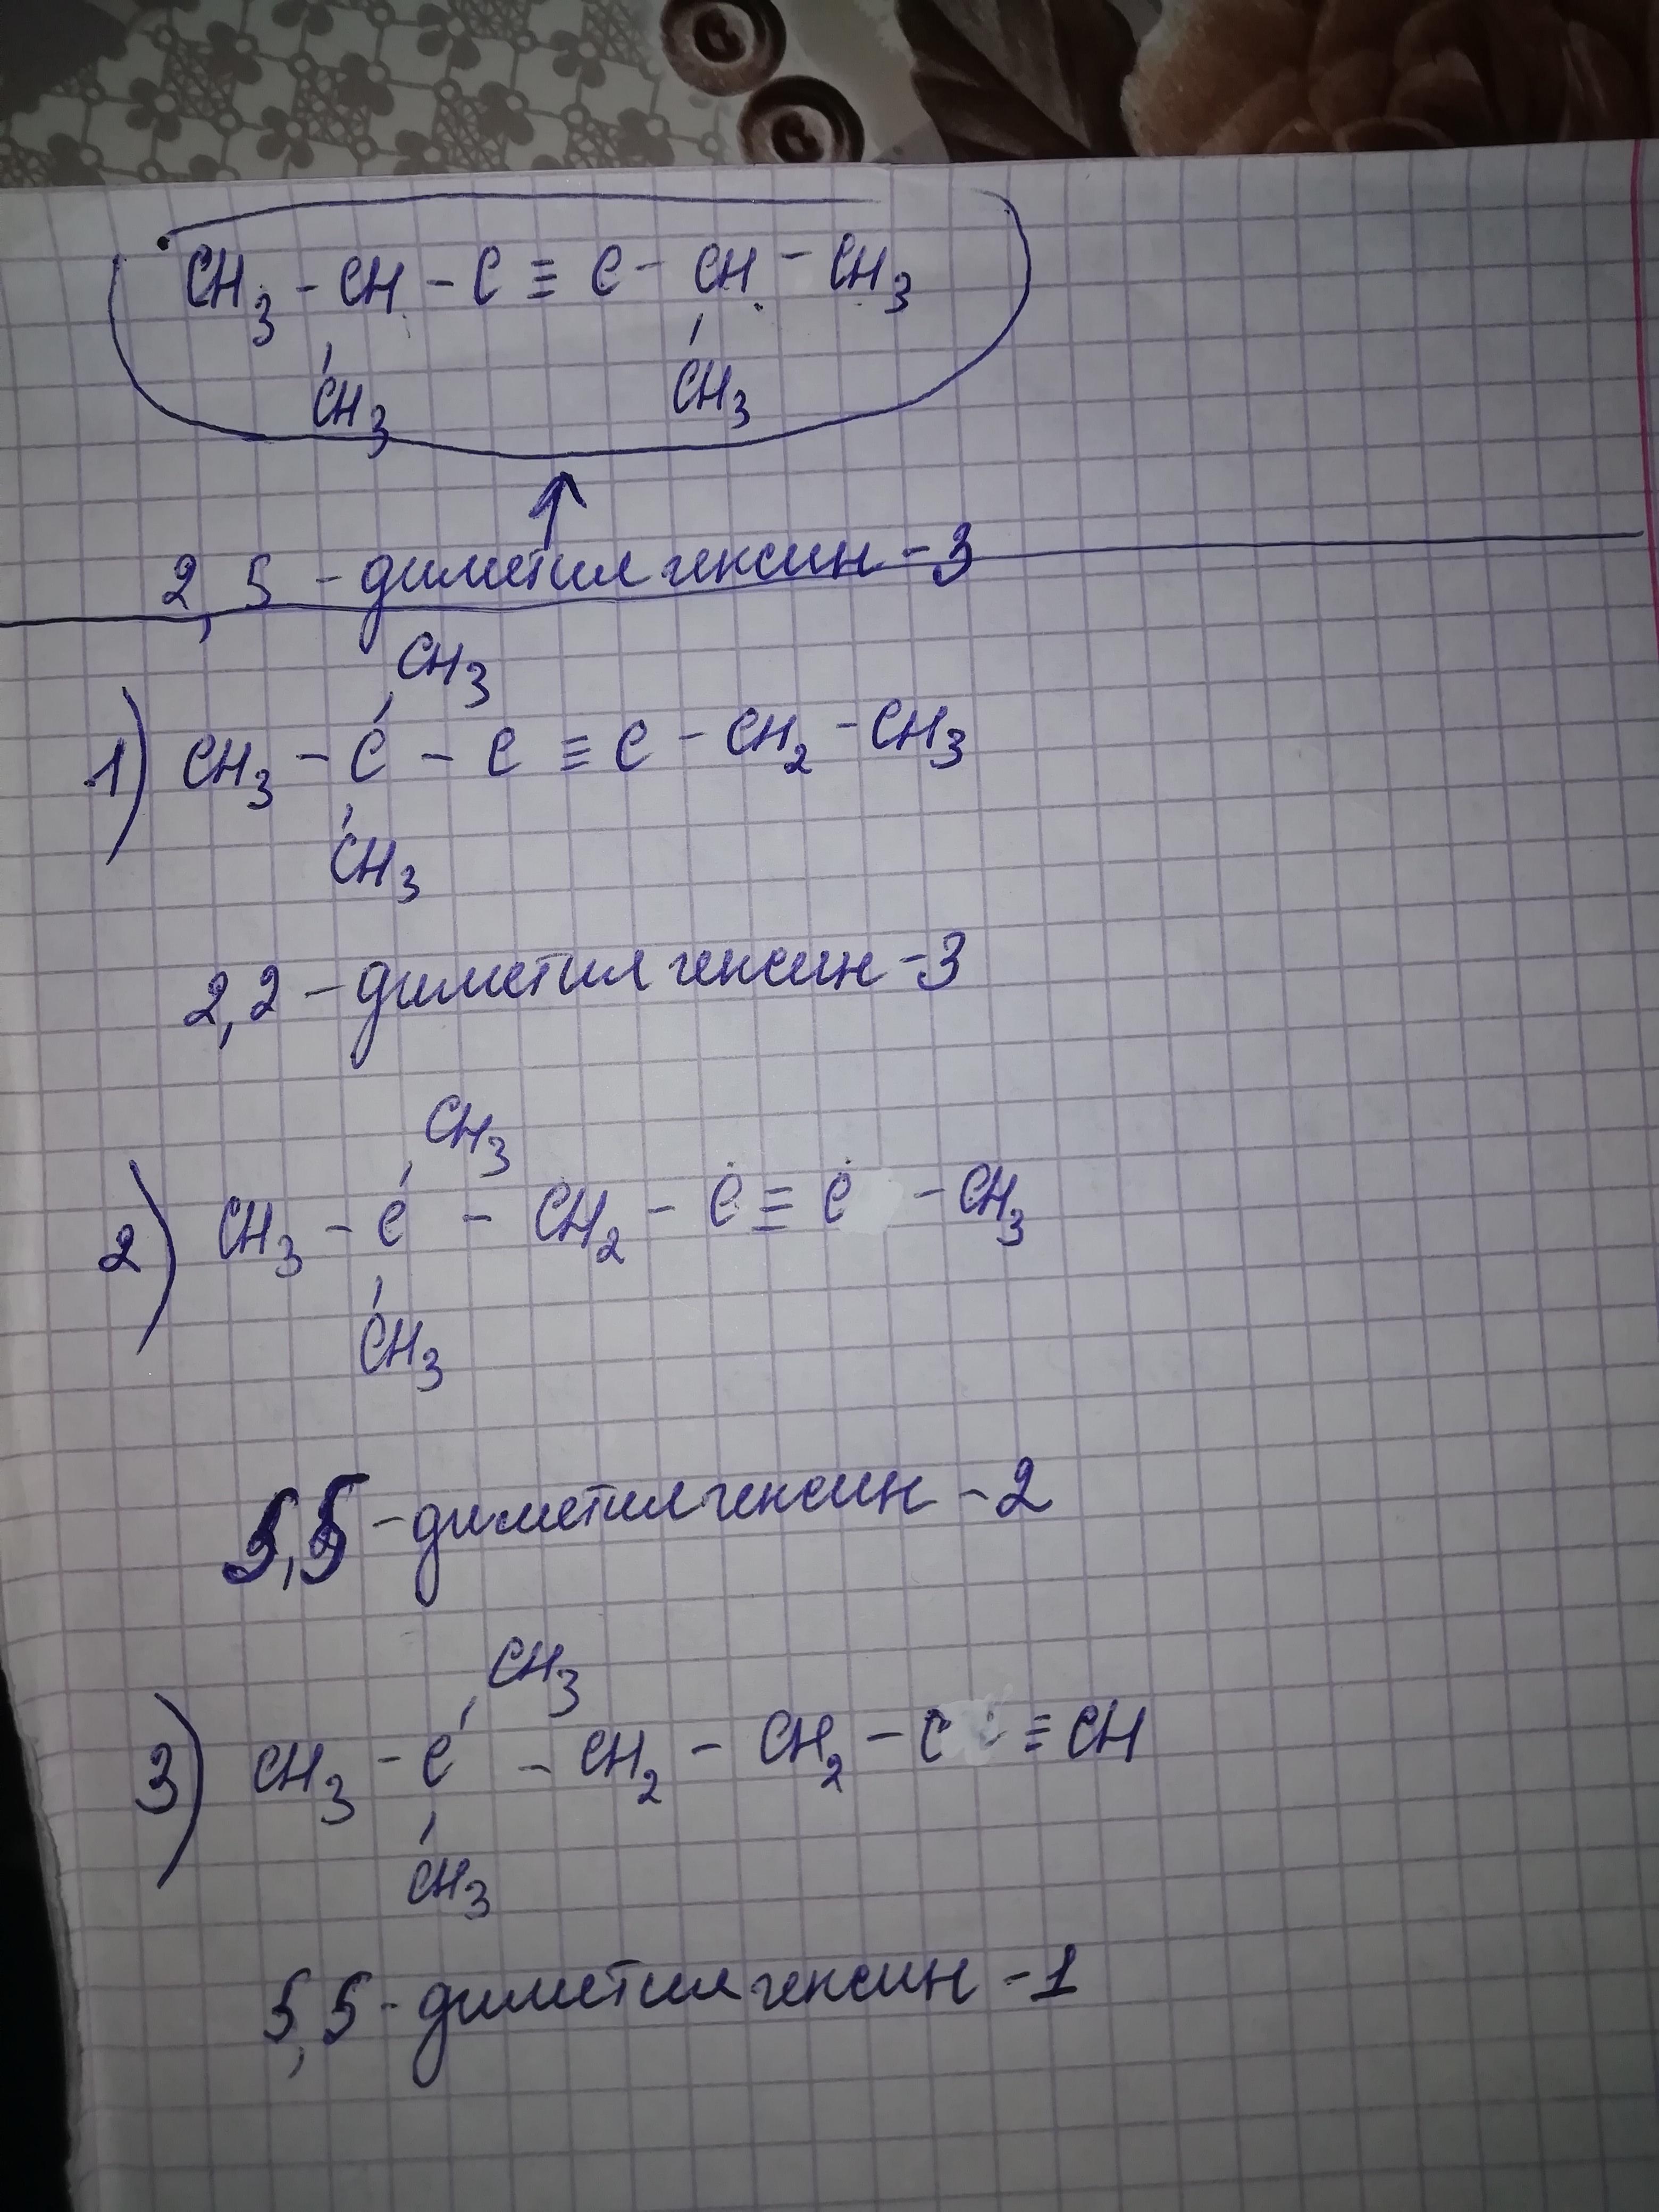 CH3 - CH - C ≡ C - CH - CH3
CH3 CH3
2,5 - диметил гексин - 3
CH3
1) CH3 - C - C ≡ C - CH2 - CH3
CH3
2,2 - диметил гексин - 3
CH3
2) CH3 - C - CH2 - C ≡ C - CH3
CH3
5,5 - диметилгексин - 2
CH3
3) CH3 - C - CH2 - CH2 - C ≡ CH
CH3
5,5 - диметилгексин - 1